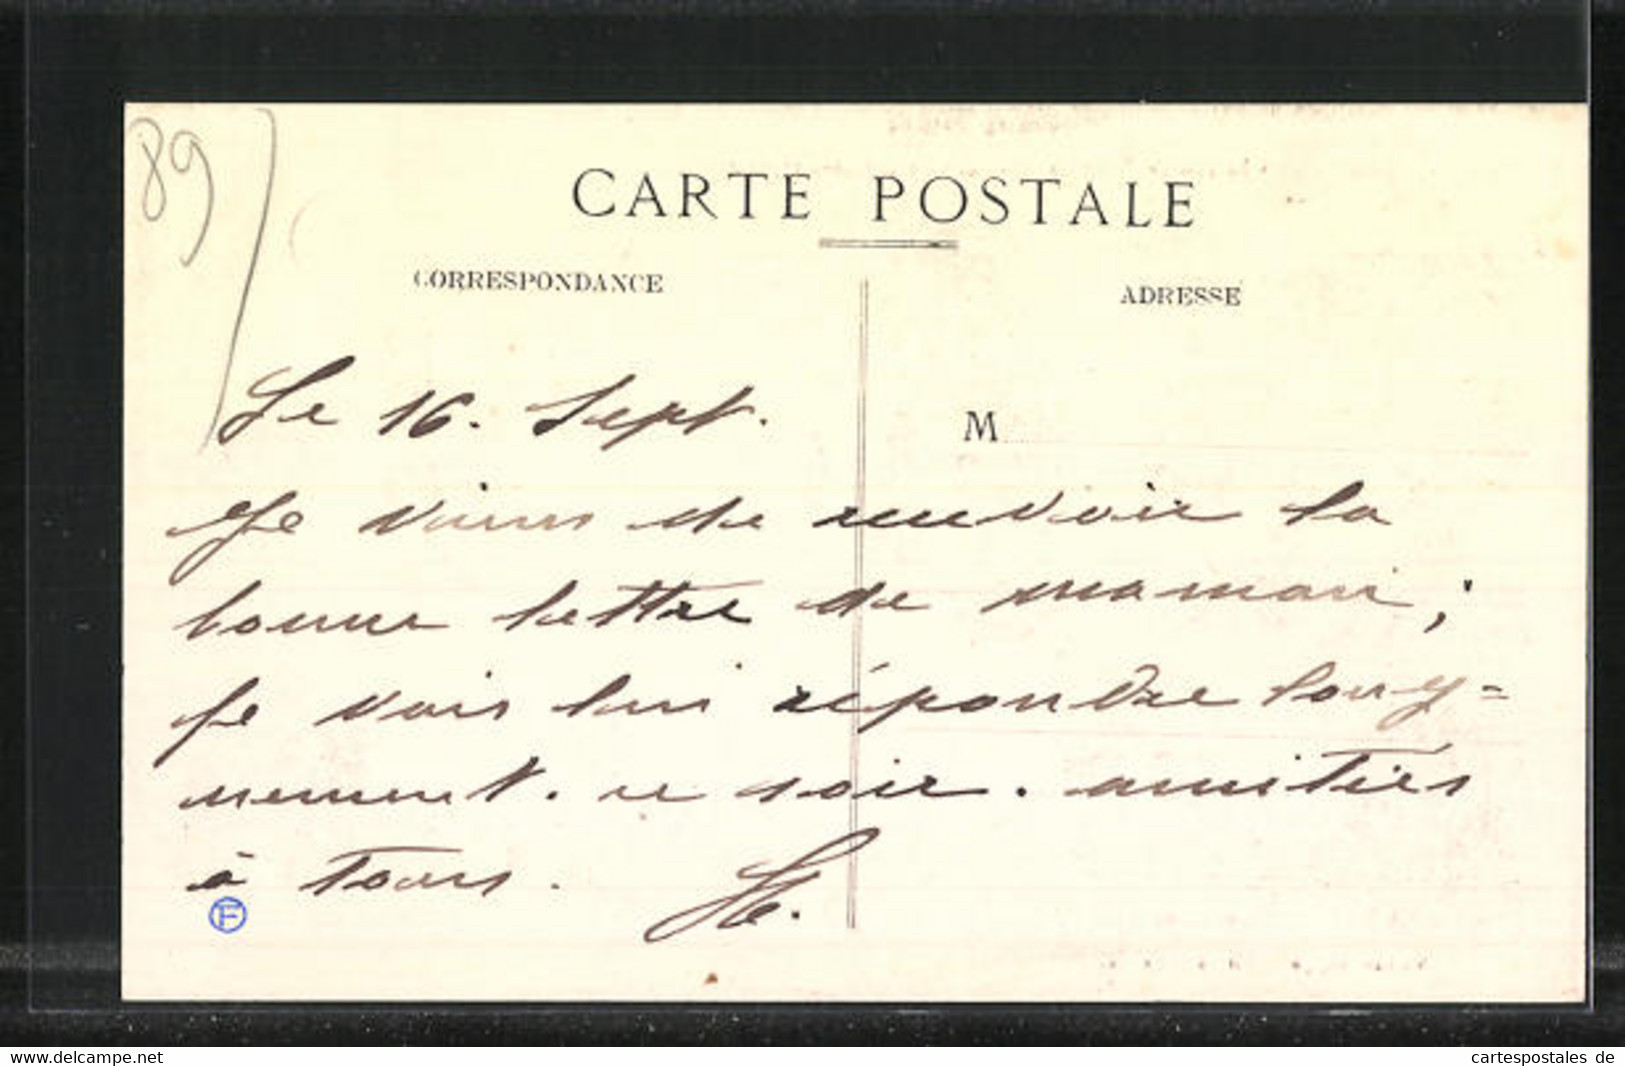 89
CARTE POSTALE
CORRESPONDANCE
ADRESSE
Le 16. Sept.
M
Je viens de recevoir la
bonne lettre de maman ;
je vais lui répondre longue=
mement. ce soir. amitiés
à tous.
F
www.delcampe.net
cartespostales de